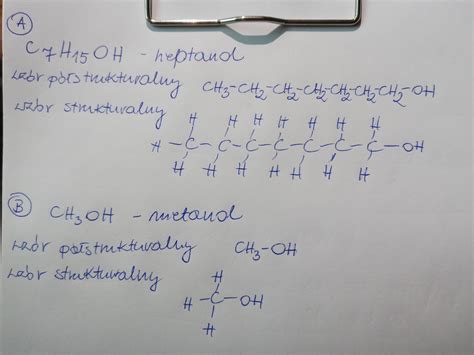 A
C7H15OH - heptanol
wzór półstrukturalny CH3-CH2-CH2-CH2-CH2-CH2-CH2-OH
wzór strukturalny
H H H H H H H
H-C-C-C-C-C-C-C-OH
H H H H H H H
B
CH3OH - metanol
wzór półstrukturalny CH3-OH
wzór strukturalny
H
H-C-OH
H